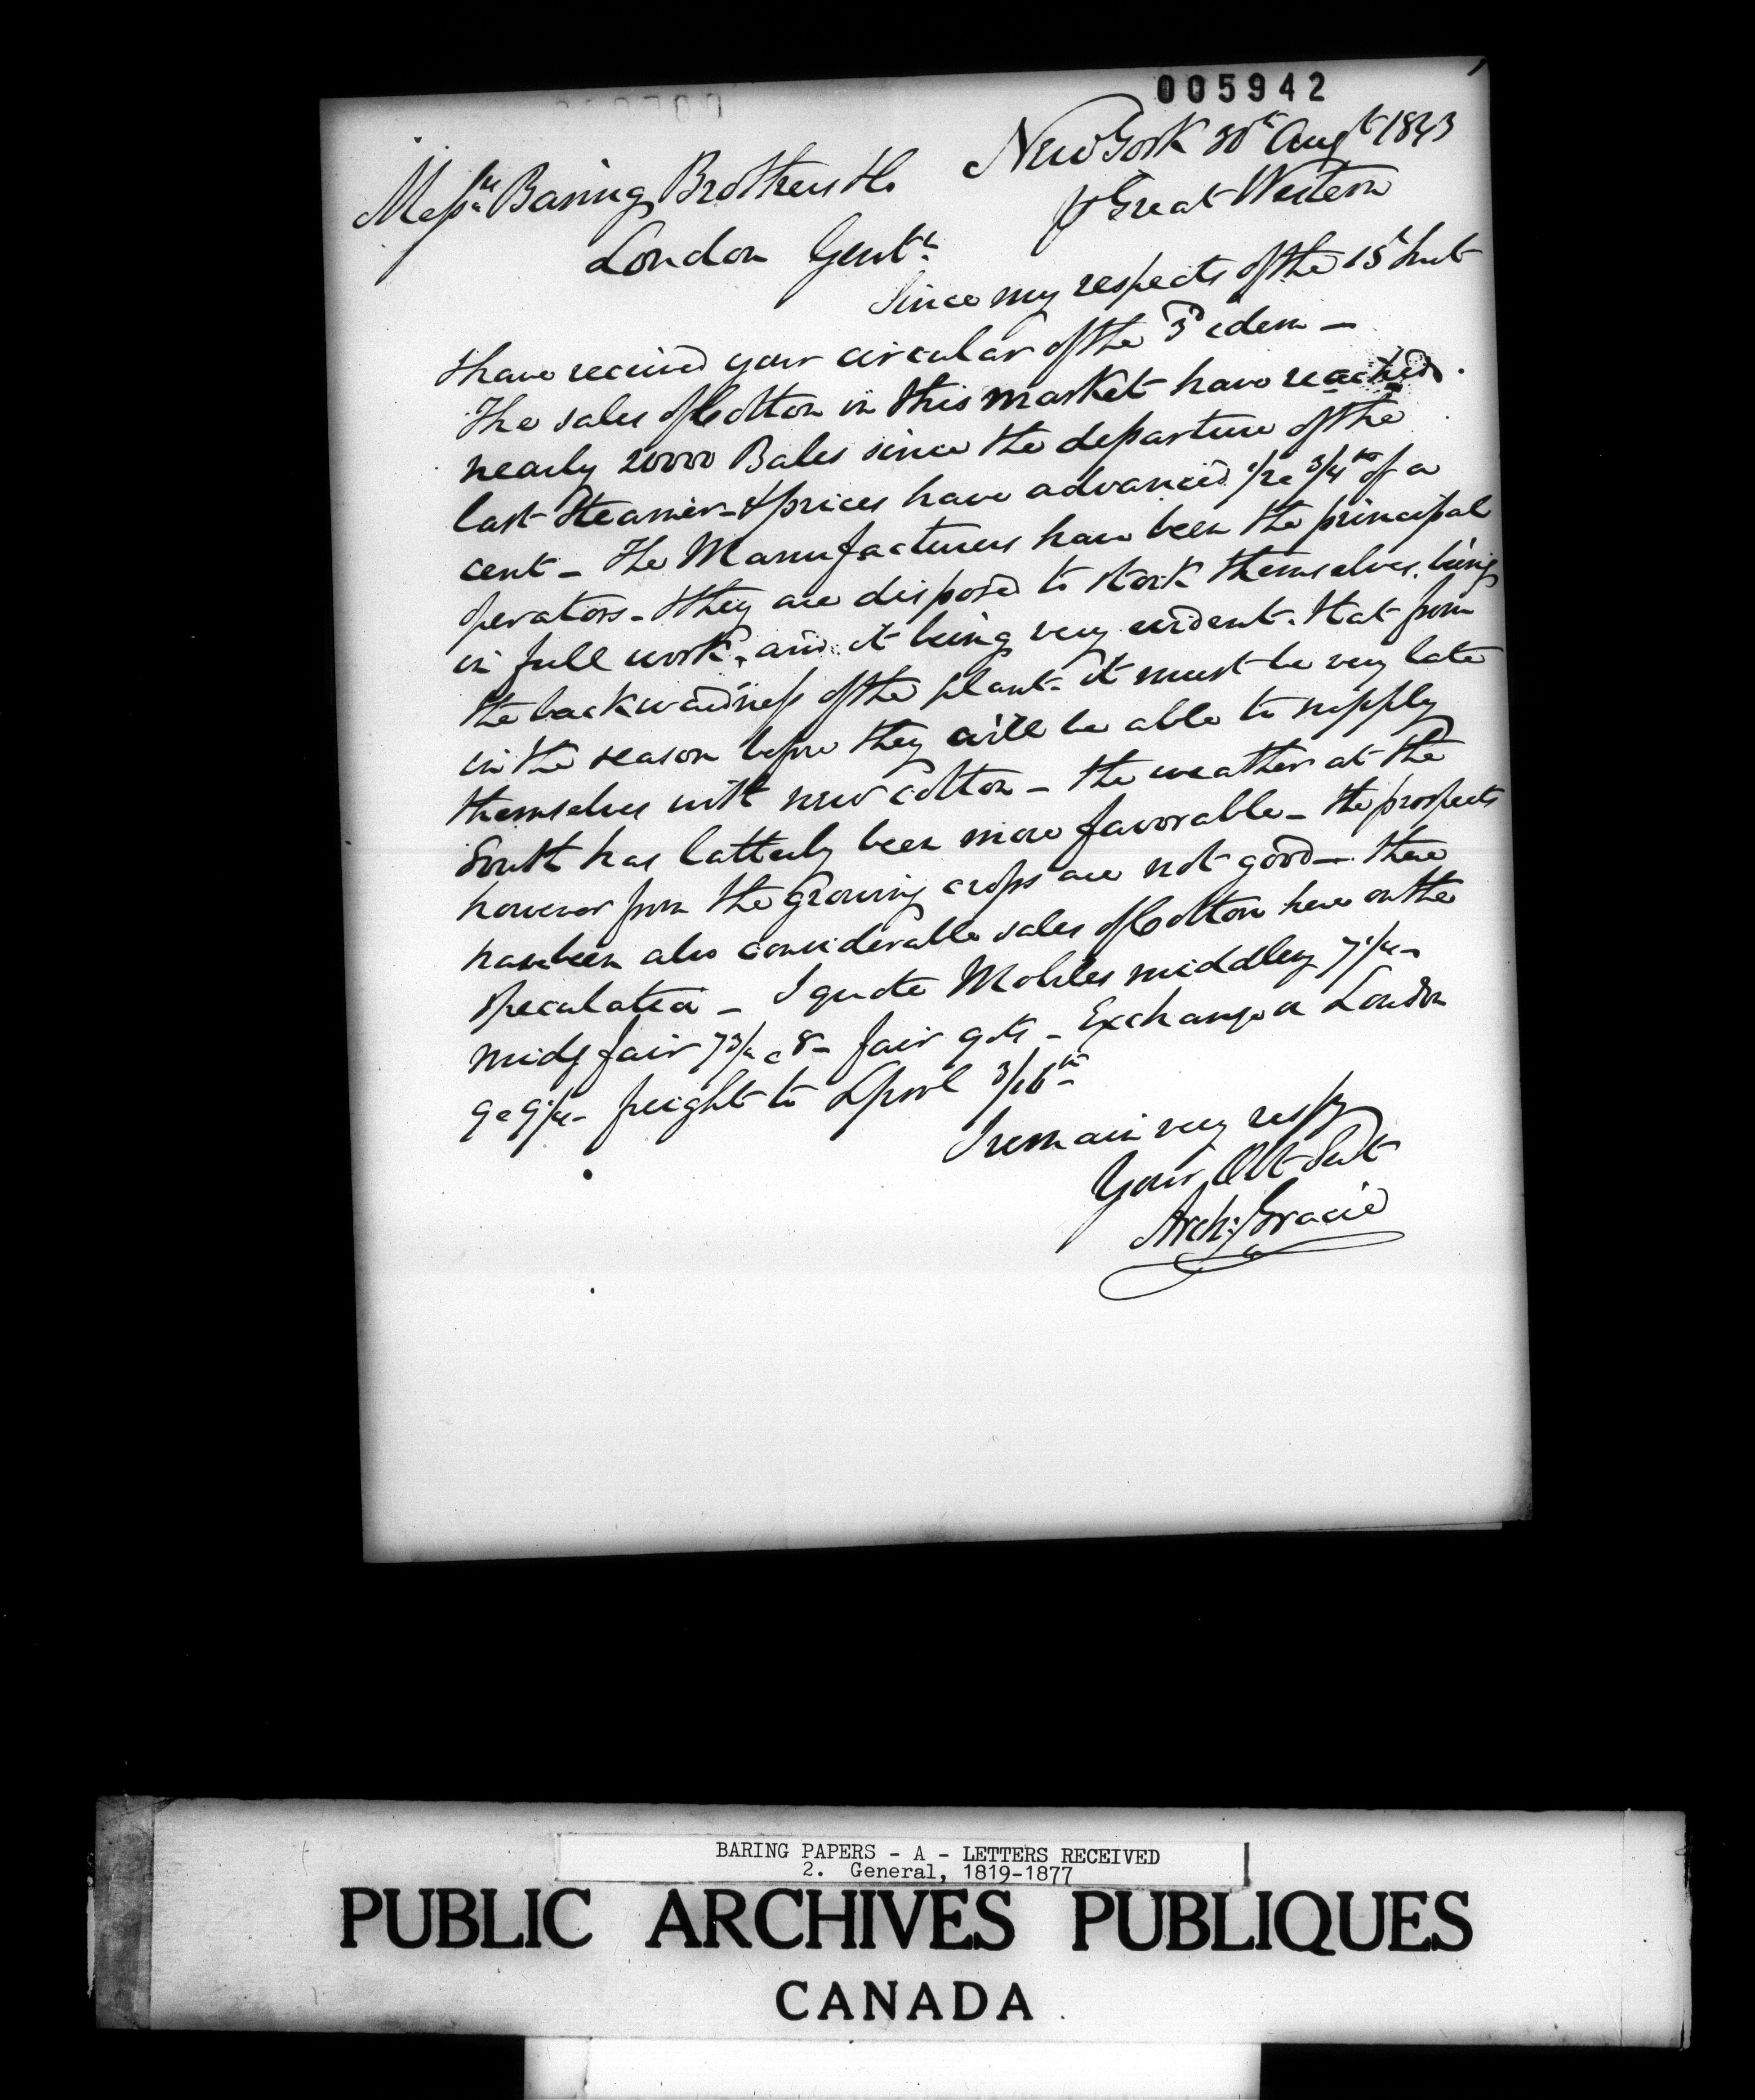 005942
New York 30th Augt 1843
Messrs Baring Brothers & Co
p Great Western
London Gentn
Since my respects of the 15th Inst
I have received your circular of the 3d idem —
The sales of Cotton in this market have reached
nearly 20000 Bales since the departure of the
last Steamer - & prices have advanced 1/2 a 3/4ths of a
cent - The Manufacturers have been the principal
operators - they are disposed to stock themselves, being
in full work, and it being very evident that from
the backwardness of the plant - it must be very late
in the season before they will be able to supply
themselves with new cotton - the weather at the
South has latterly been more favorable - the prospects
however from the growing crops are not good — there
have been also considerable sales of Cotton here on the
speculation - I quote Mobiles middlg 7 1/4 -
midg fair 7 3/4 a 8 - fair 9 cts - Exchange on London
9 a 9 1/4 - freight to Lpool 3/16ths
I remain very respy
Your Obt Servt
Archd Gracie
BARING PAPERS - A - LETTERS RECEIVED
2. General, 1819-1877
PUBLIC ARCHIVES PUBLIQUES
CANADA